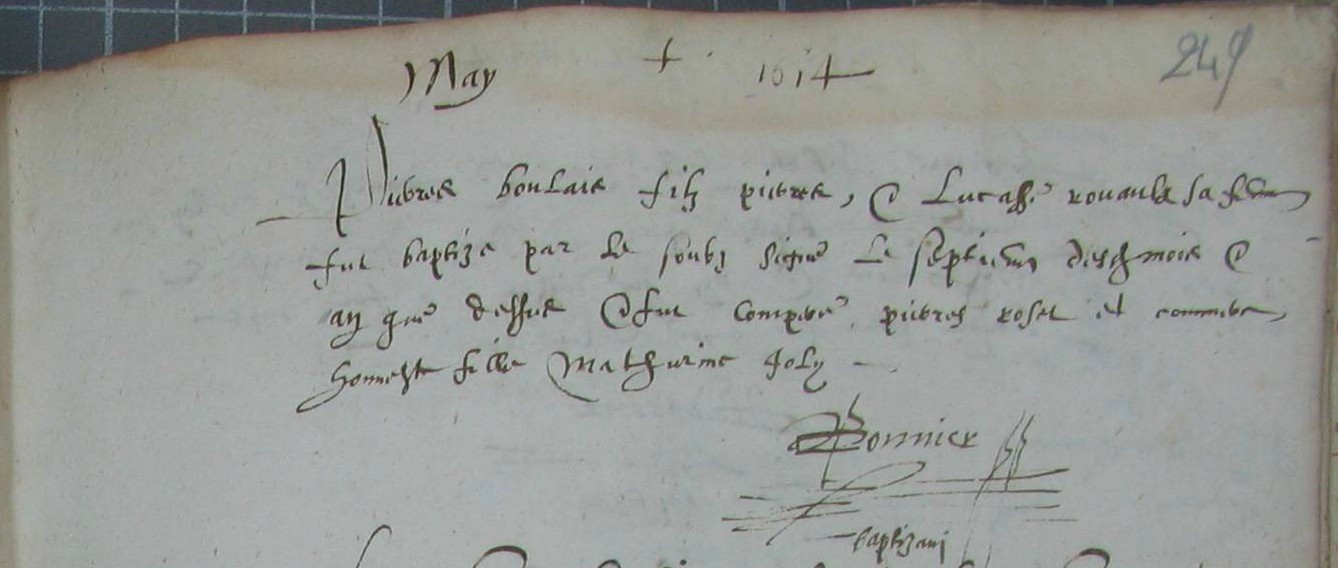 May + 1614 249
Pierres boulais filz pierres, & Lucasse rouault sa femme
fut baptize par le soubz signe le septiesme desd mois &
an que dessus & fut compere pierres roset et commere,
honneste fille Mathurine Joly -
Bonnier
baptizavi